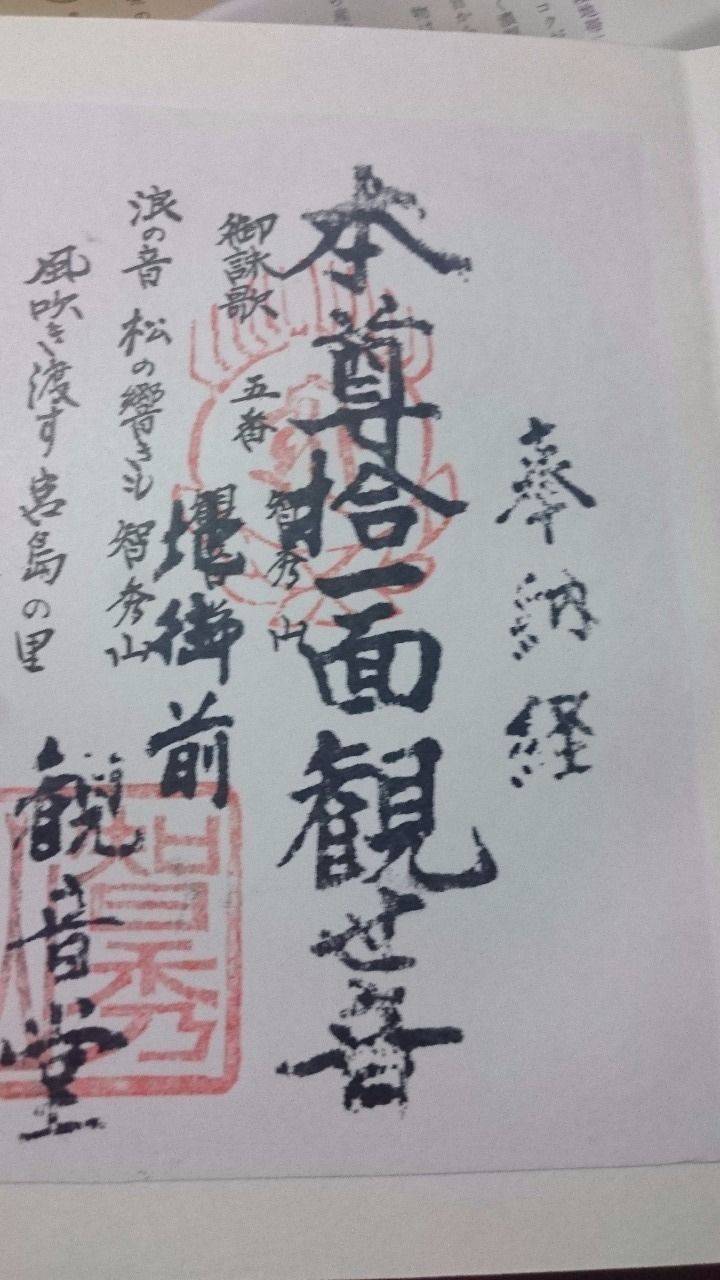 奉納経
本尊拾一面観せ音
智秀山
御詠歌 五番
地御前
浪の音 松の響きも 智秀山
風吹き渡す宮島の里
観音堂
智秀